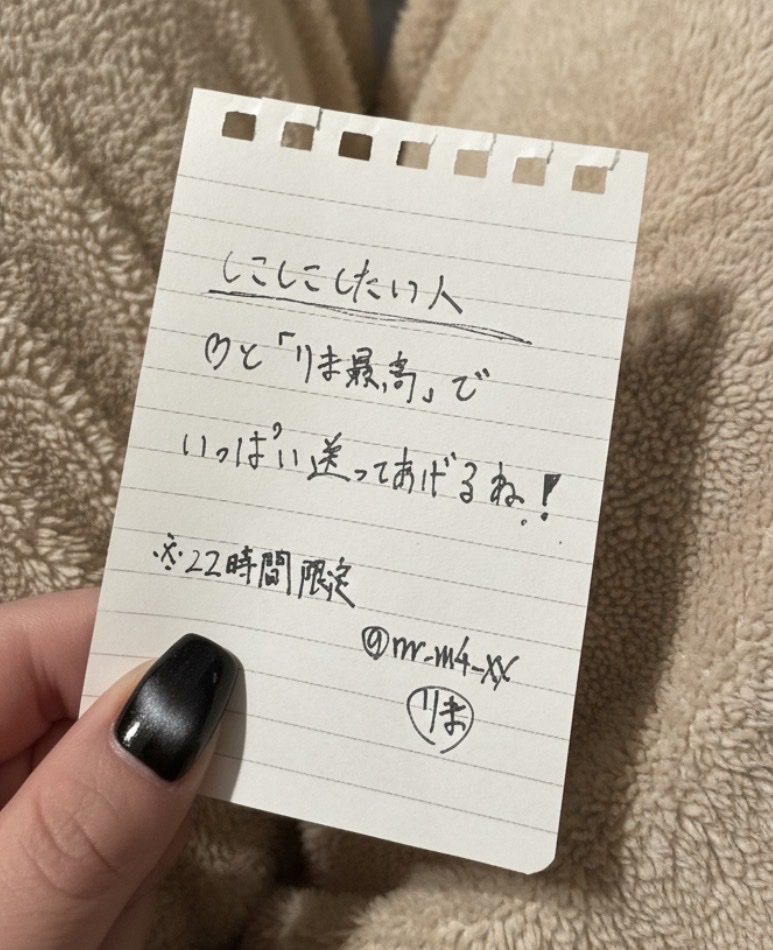 しこしこしたい人
♡と「りま最高」で
いっぱい送ってあげるね!
※22時間限定
@mr_m4_xx
りま